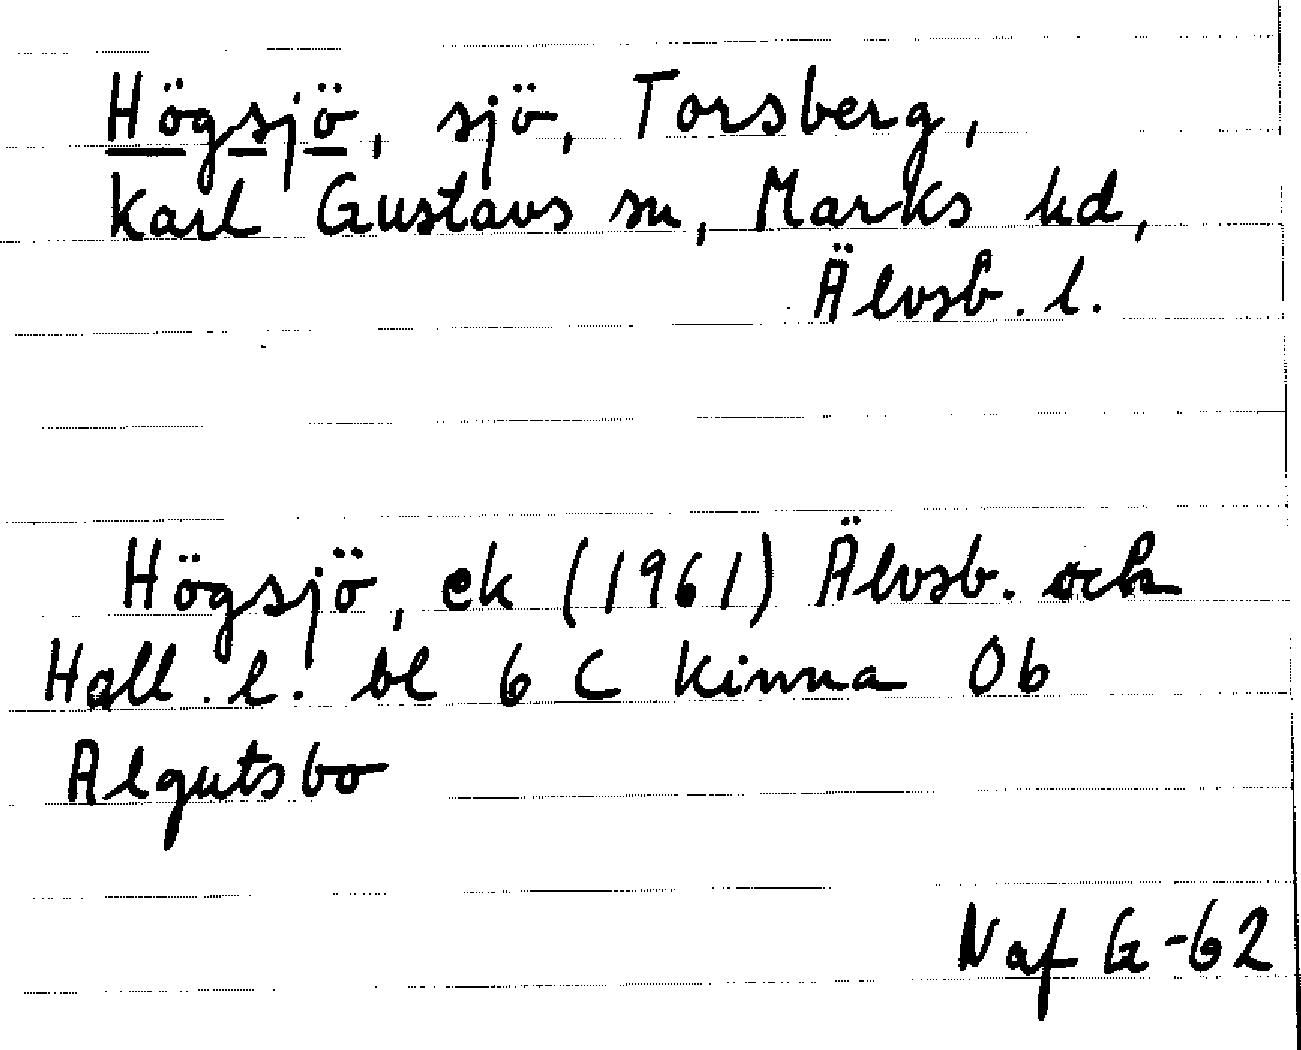 Högsjö, sjö, Torsberg,
Karl Gustavs sn, Marks hd,
Älvsb. l.
Högsjö, ek (1961) Älvsb. och
Hall. l. bl 6 C Kinna 0b
Algutsbo
Naf G-62